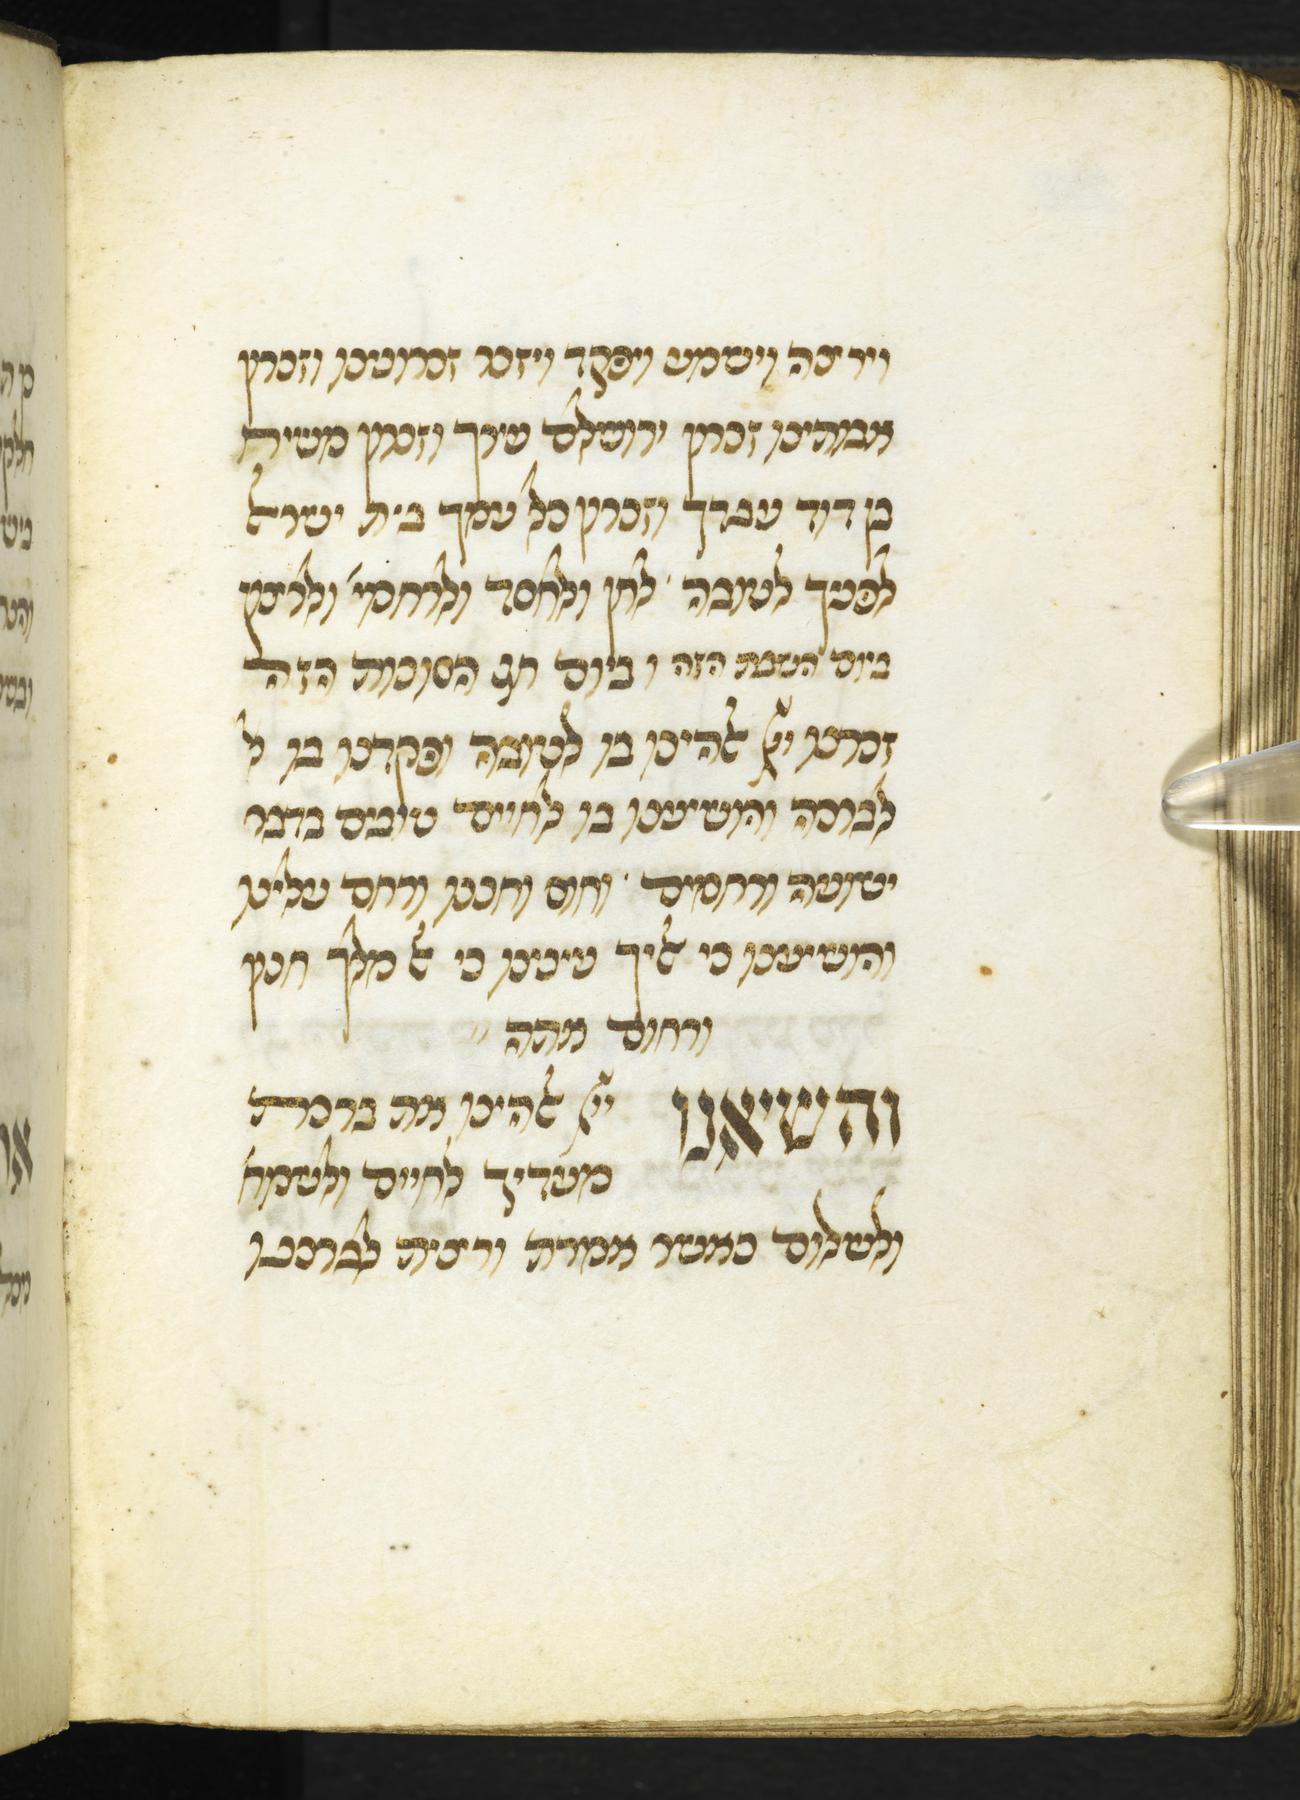 וירצה וישמע ויפקד ויזכר זכרונינו וזכרון
אבותינו זכרון ירושלם עירך וזכרון משיח
בן דוד עבדך וזכרון כל עמך בית ישראל
לפניך לטובה לחן ולחסד ולרחמי' ולרצון
ביום השבת הזה וביום חג הסוכות הזה
זכרנו יי אלהינו בו לטובה ופקדנו בו ל
לברכה והושיענו בו לחיים טובים בדבר
ישועה ורחמים וחוס וחננו ורחם עלינו
והושיענו כי אליך עינינו כי אל מלך חנון
ורחום אתה
והשיאנו יי אלהינו את ברכת
מעדיך לחיים ולשמח'
ולשלום כאשר אמרת ורצית לברכנו
מן ה
חלק